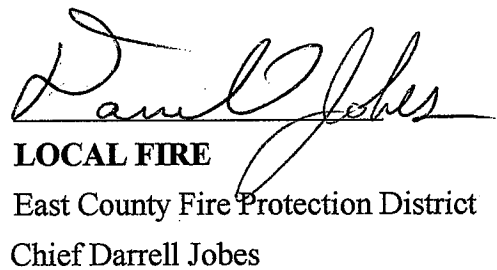 Darrell Jobes
LOCAL FIRE
East County Fire Protection District
Chief Darrell Jobes